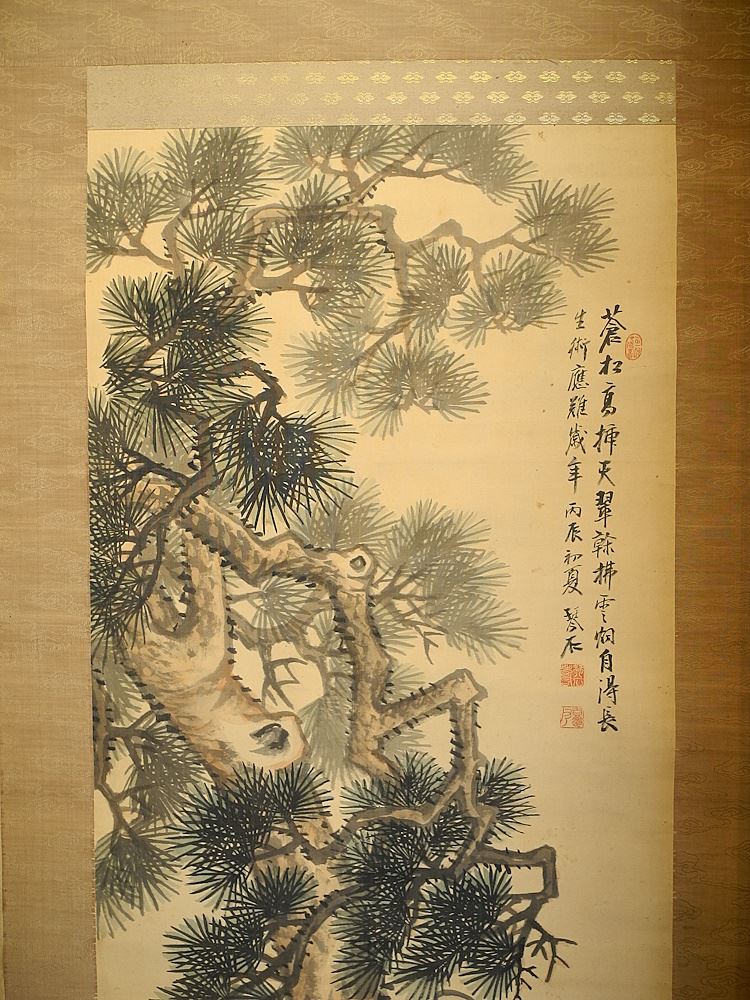 蒼松高揷天翠幹拂雲烟自得長
生術應難歲年丙辰初夏琴石